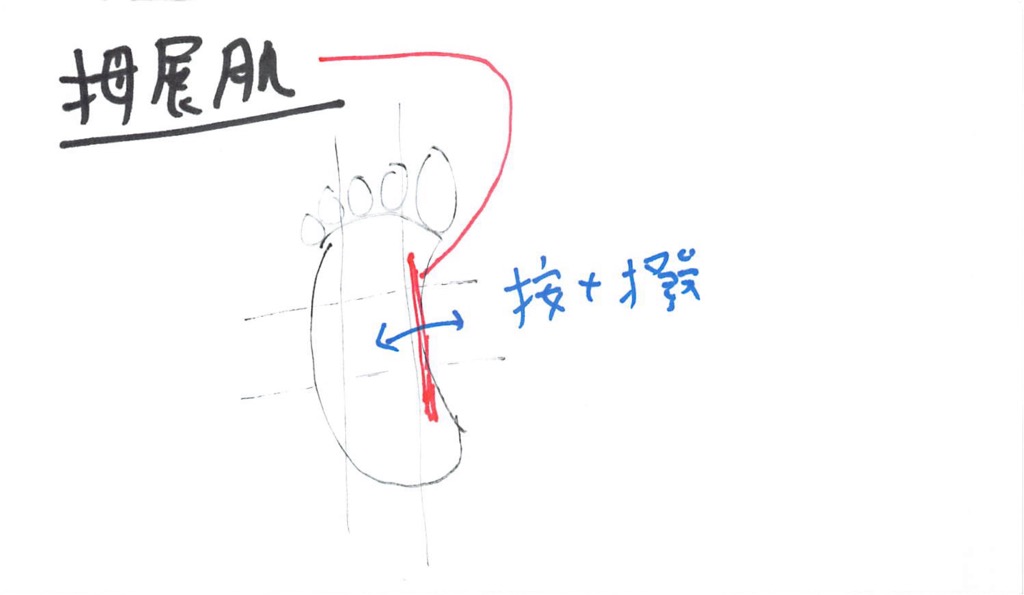 拇展肌
按+撥